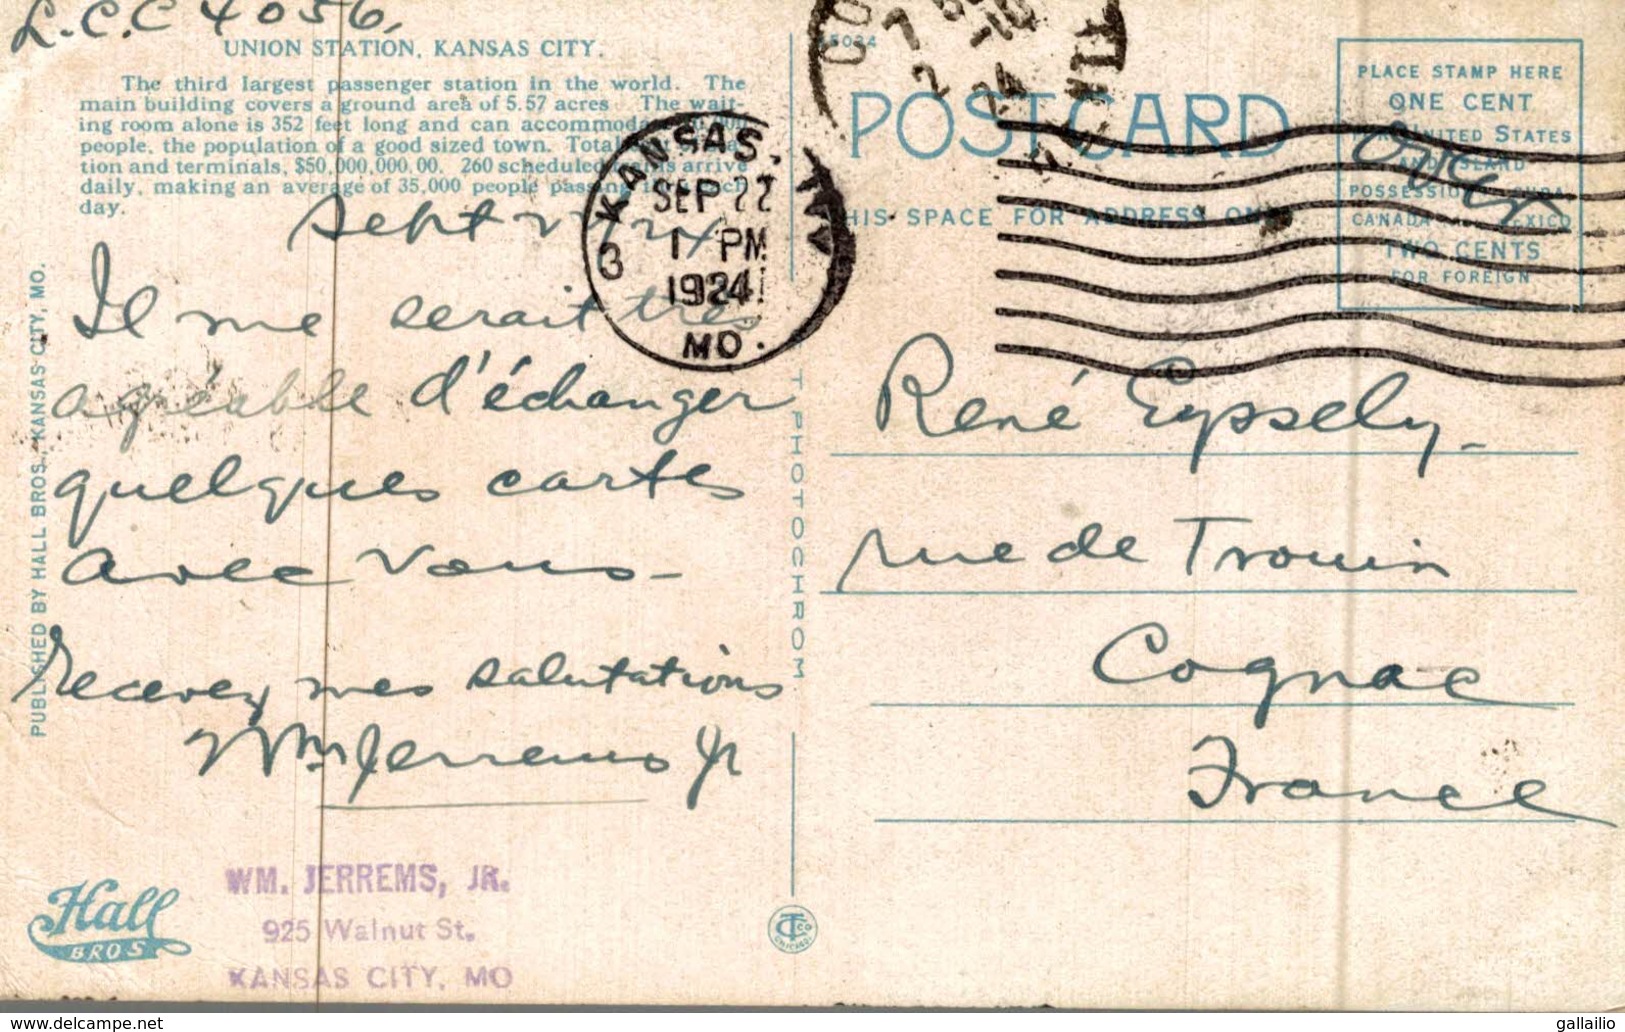 L.C.C 4056,
UNION STATION, KANSAS CITY.
The third largest passenger station in the world. The
main building covers a ground area of 5.57 acres. The wait-
ing room alone is 352 feet long and can accommodate
people, the population of a good sized town. Total
tion and terminals, $50,000,000.00. 260 scheduled arrive
daily, making an average of 35,000 people passing each
day.
Sept 22/24
Il me serait très
agréable d'échanger
quelques cartes
avec vous –
Recevez mes salutations
Wm Jerrems Jr
WM. JERREMS, JR.
925 Walnut St.
KANSAS CITY, MO
Hall
BROS
PUBLISHED BY HALL BROS., KANSAS CITY, MO.
KANSAS CITY
SEP 22
1 PM
1924
MO.
3
POSTCARD
THIS SPACE FOR ADDRESS ONLY
PLACE STAMP HERE
ONE CENT
UNITED STATES
AND ISLAND
POSSESSIONS, CUBA
CANADA MEXICO
TWO CENTS
FOR FOREIGN
over
PHOTOCHROM
René Eypsely –
rue de Trouin
Cognac
France
CT CO
CHICAGO
gallailio
www.delcampe.net